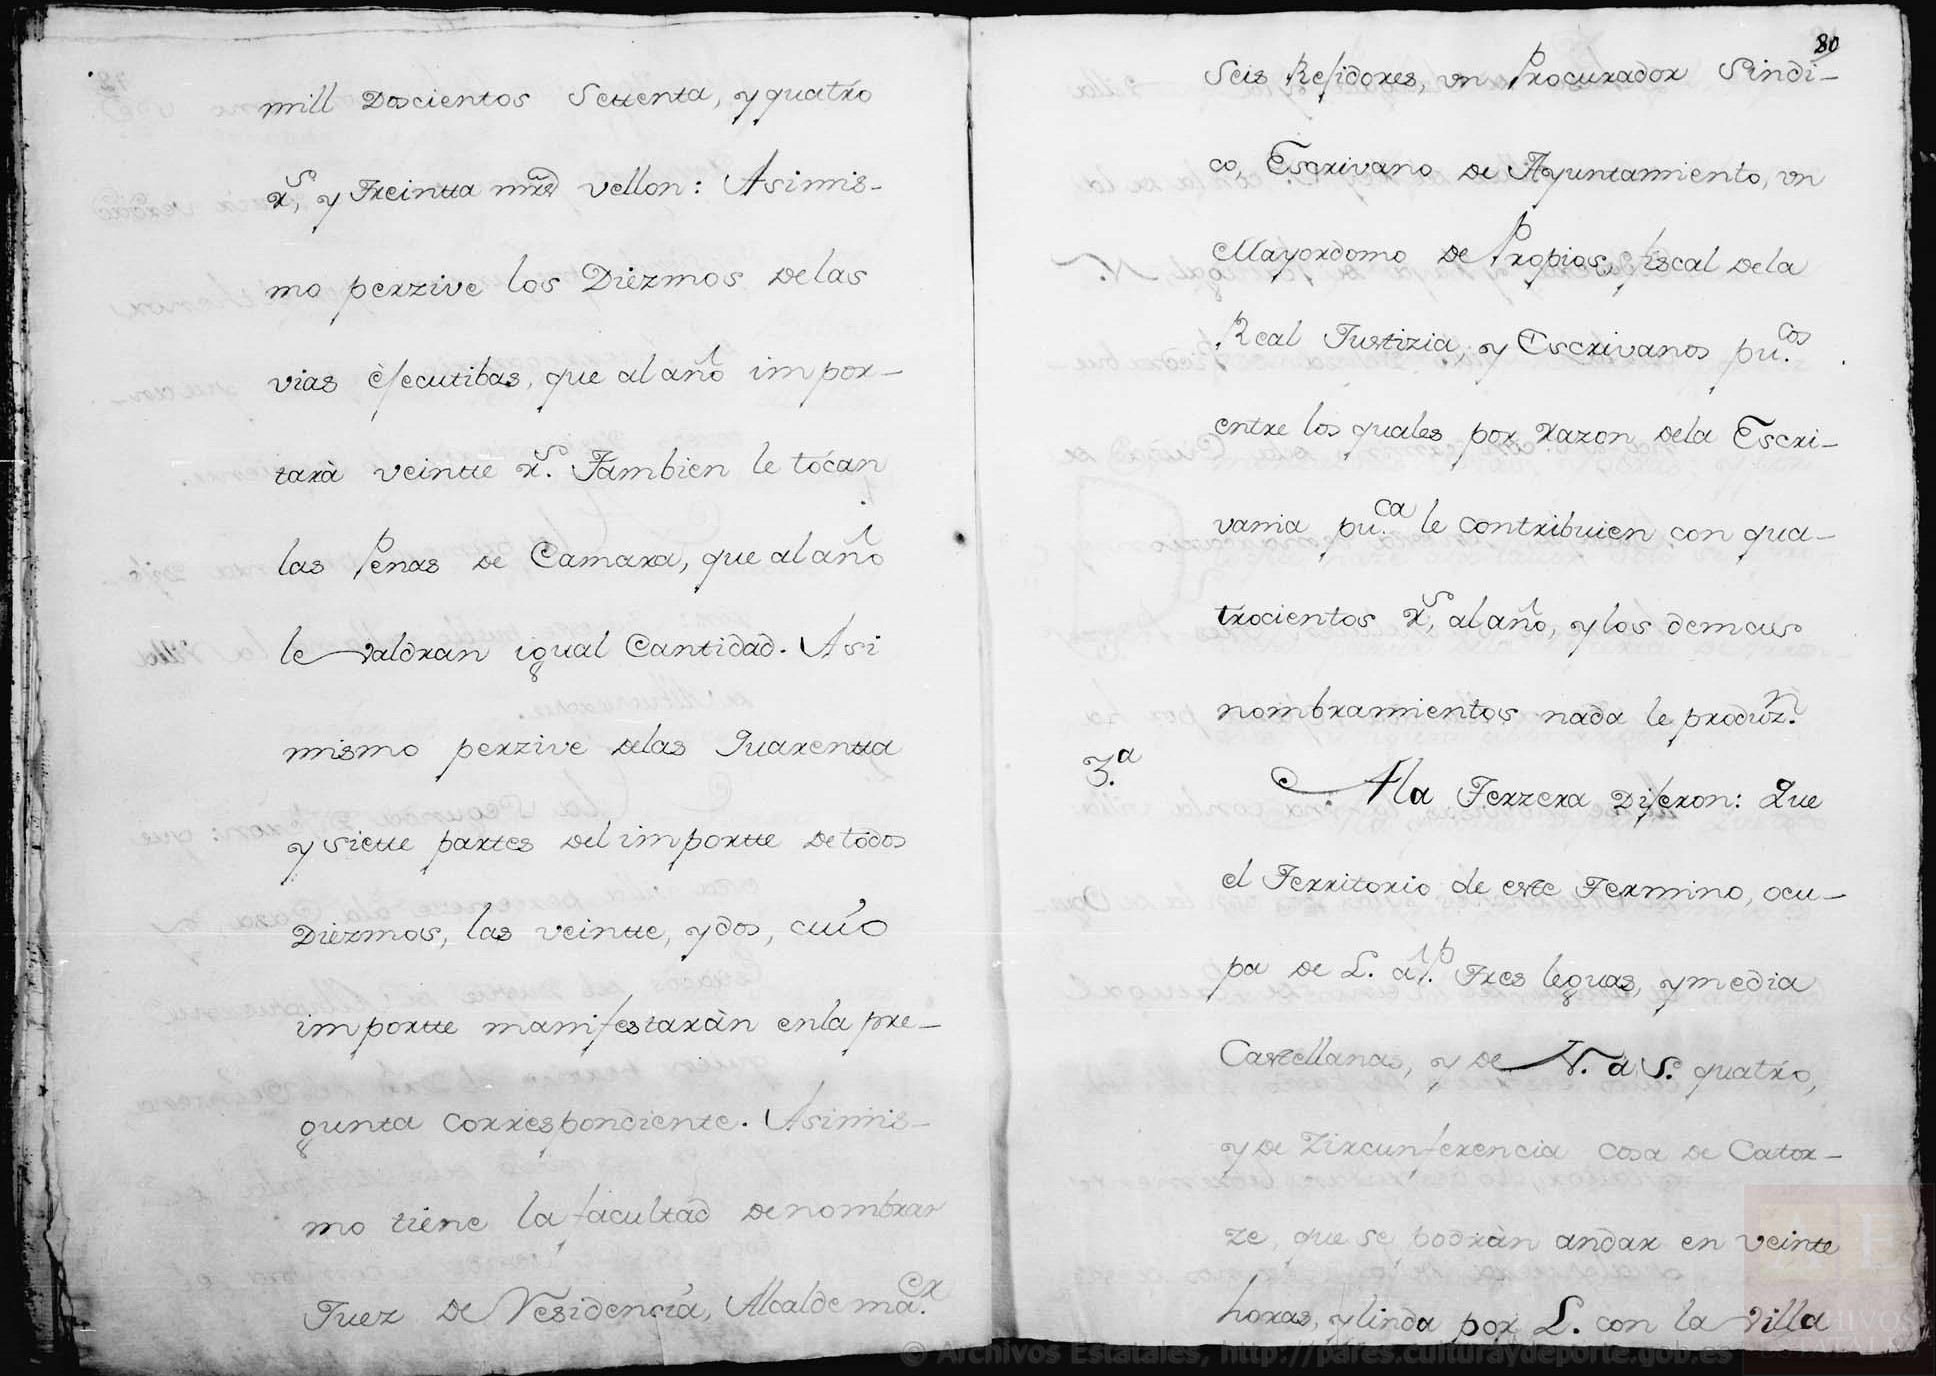 mill Doscientos Settenta, y quatro
r.s, y Treintta mrs vellon: Asimis-
mo perzive los Diezmos delas
vias ejecutibas, que al año impor-
tarà veintte r.s Tambien le tócan
las Penas de Camara, que al año
le valdran igual Cantidad. Asi
mismo perzive delas Quarentta
y siette partes del importte detodos
Diezmos, las veintte, y dos, cuio
importte manifestaràn enla pre-
gunta correspondiente. Asimis-
mo tiene la facultad denombrar
Juez de Residencia, Alcalde ma.or
80
Seis Rejidores, vn Procurador Sindi-
co, Escrivano de Ayuntamiento, vn
Mayordomo de Propios, fiscal dela
Real Justizia, y Escrivanos pu.cos
entre los quales por razon dela Escri-
vania pu.ca le contribuien con qua-
trocientos r.s, al año, y los demas
nombramientos nada le produz.n
3.a
A la Terzera Dijeron: Que
el Territorio de este Termino, ocu-
pa de L. a P. Tres leguas, y media
Castellanas, y de N. a S. quatro,
y de Zircunferencia cosa de Cator-
ze, que se podràn andar en veinte
horas, y linda por L. con la villa
© Archivos Estatales, http://pares.culturaydeporte.gob.es
AE
ARCHIVOS
ESTATALES